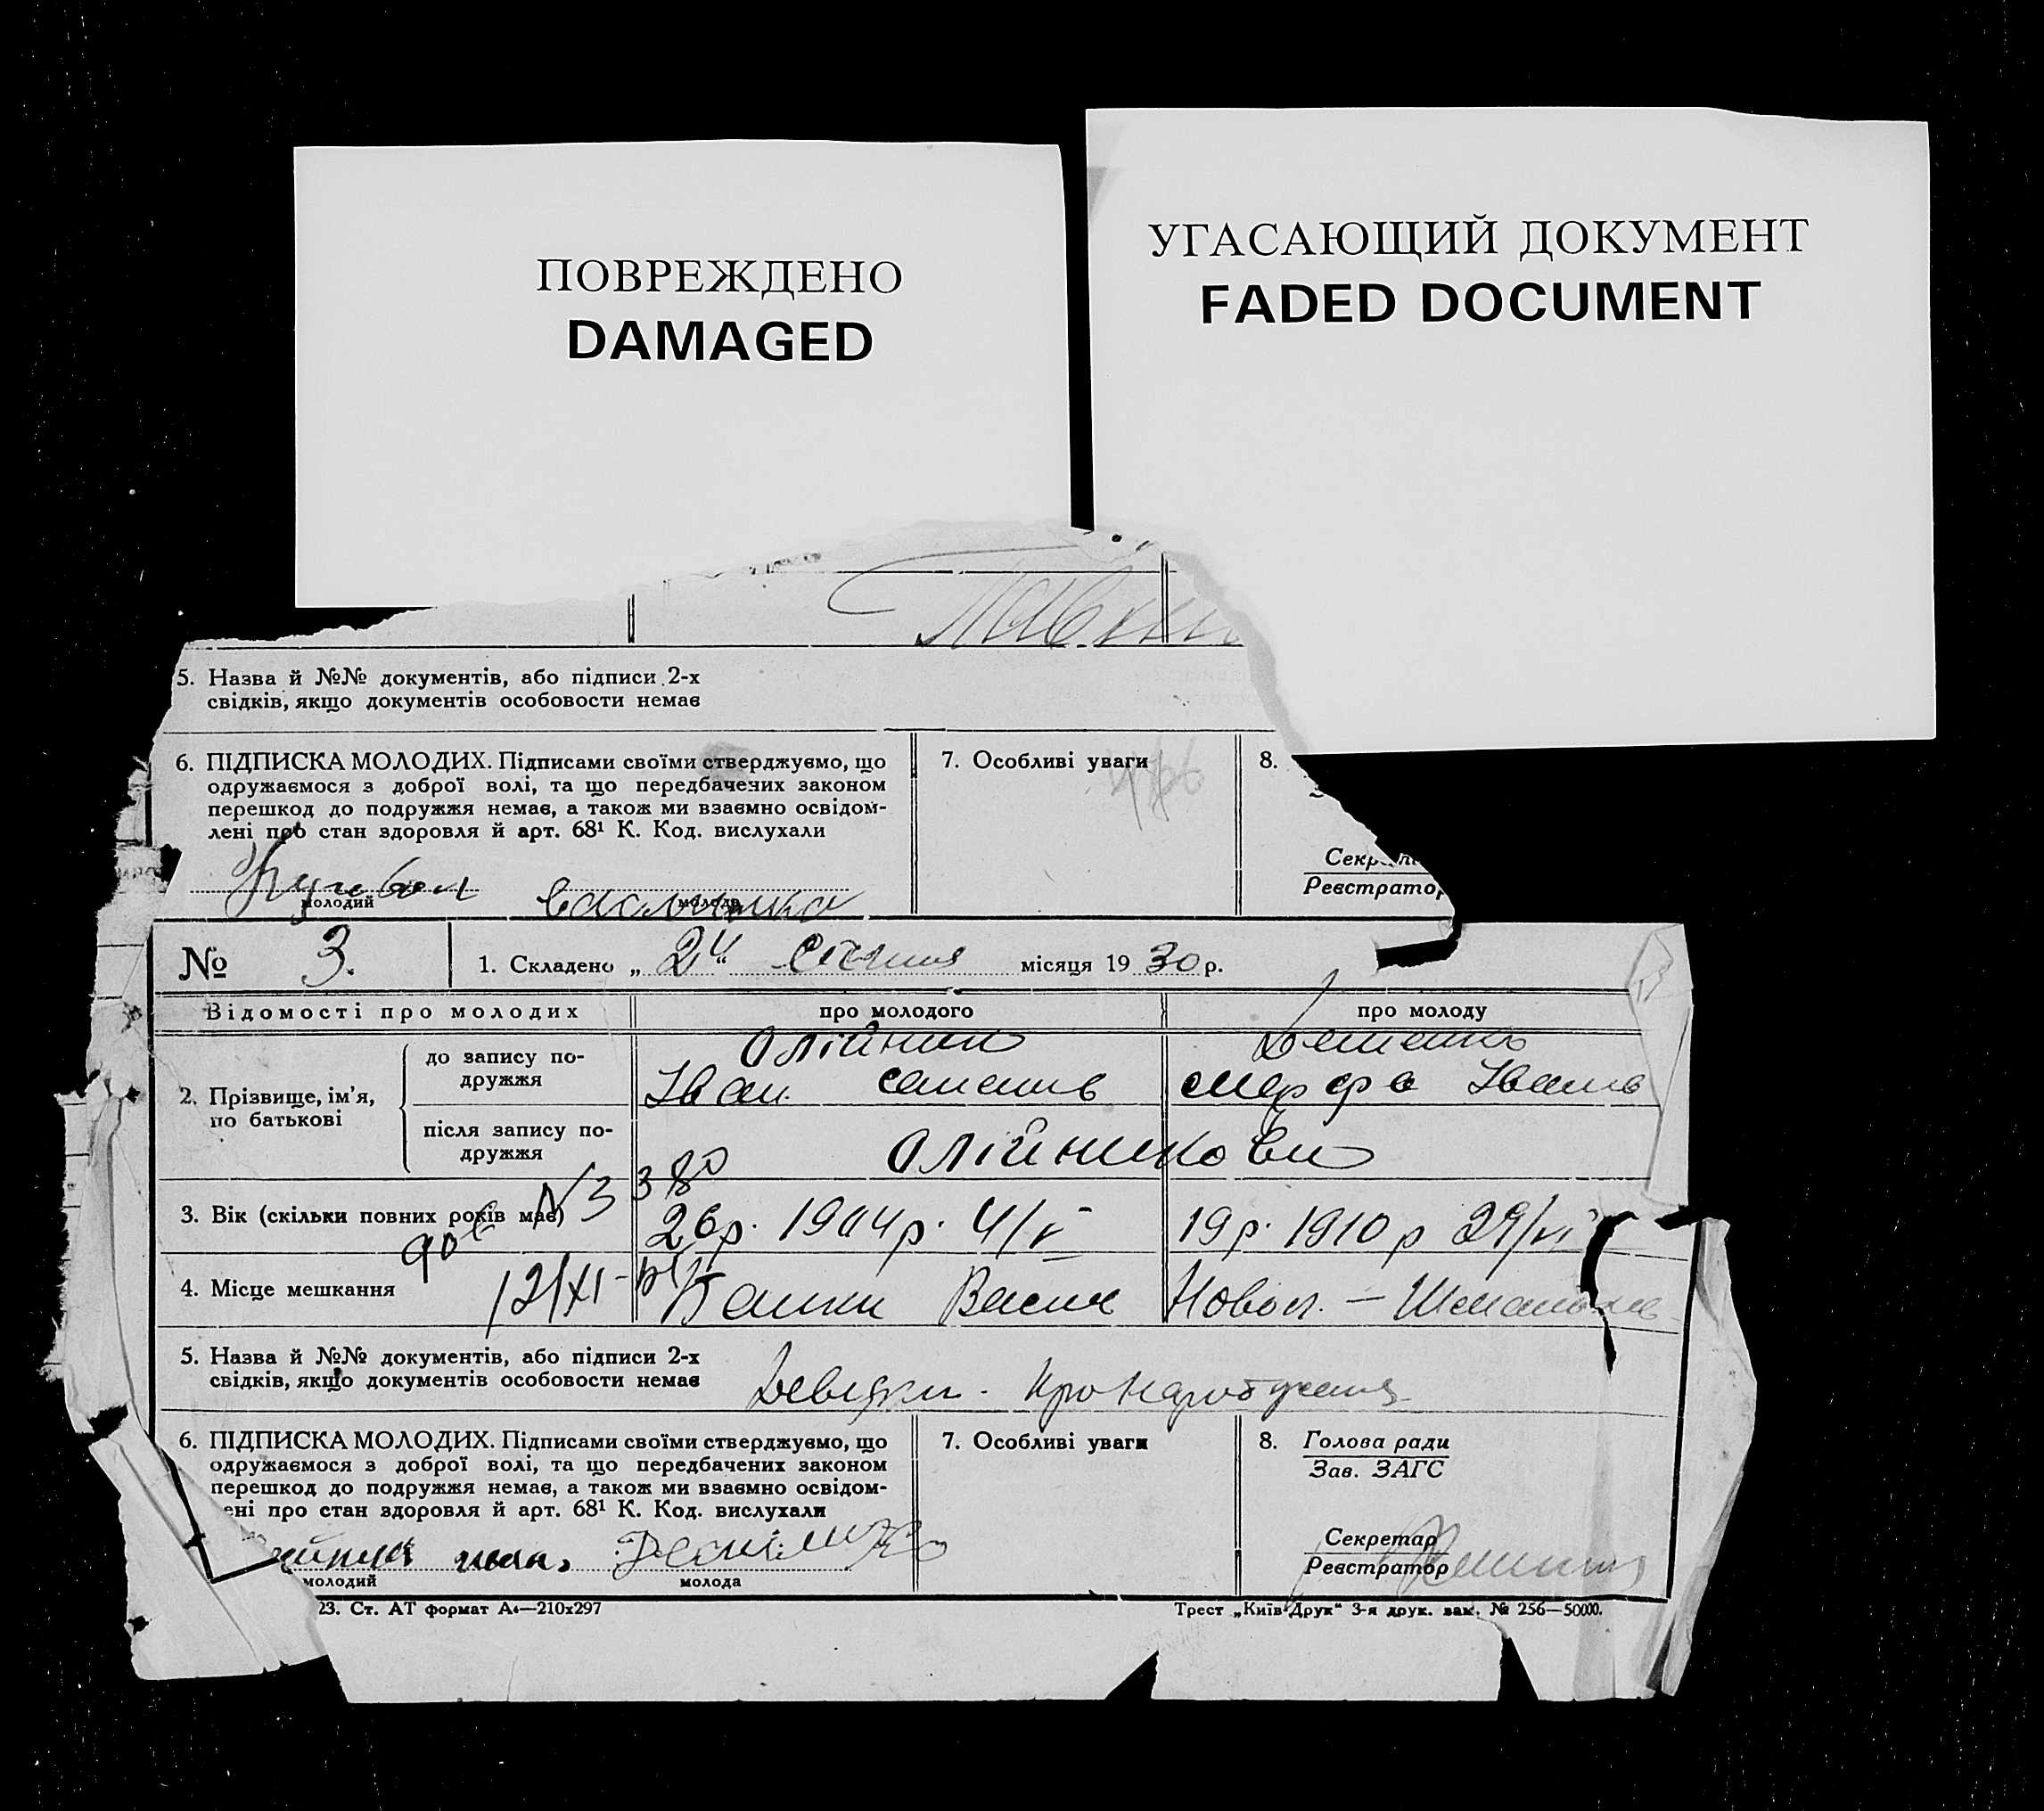 ПОВРЕЖДЕНО
DAMAGED
УГАСАЮЩИЙ ДОКУМЕНТ
FADED DOCUMENT
5. Назва й №№ документів, або підписи 2-х
свідків, якщо документів особовости немає
6. ПІДПИСКА МОЛОДИХ. Підписами своїми стверджуємо, що
одружаємося з доброї волі, та що передбачених законом
перешкод до подружжя немає, а також ми взаємно освідом-
лені про стан здоровля й арт. 68¹ К. Код. вислухали
молодий
молода
7. Особливі уваги
8.
Реєстратор
№ 3.
1. Складено „ 2 “ січня місяця 1930 р.
Відомості про молодих
про молодого
про молоду
2. Прізвище, ім'я,
по батькові
до запису по-
дружжя
Олійник
Іван
Марфа Іванів
після запису по-
дружжя
Олійникови
3 80
3. Вік (скільки повних років має)
№3
26р. 1904р. 4/V
19р. 1910р 29/VI
4. Місце мешкання
12/XI
5. Назва й №№ документів, або підписи 2-х
свідків, якщо документів особовости немає
Довідки про народження
6. ПІДПИСКА МОЛОДИХ. Підписами своїми стверджуємо, що
одружаємося з доброї волі, та що передбачених законом
перешкод до подружжя немає, а також ми взаємно освідом-
ені про стан здоровля й арт. 68¹ К. Код. вислухали
молодий
молода
7. Особливі уваги
8. Голова ради
Зав. ЗАГС
Секретар
Реєстратор
23. Ст. АТ формат А4—210х297
Трест „Київ-Друк“ 3-я друк. зам. № 256—50000.